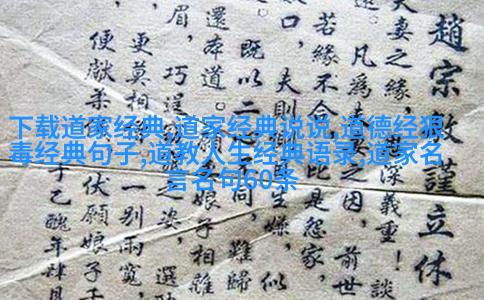 下载道家经典,道家经典说说,道德经狠
毒经典句子,道教人生经典语录,道家名
言名句60条
趙宗敏謹立休
夫妻之緣，深義重！談
凡為夫之因，前世
若緣不合，比是怨家，
口，夫則生嫌，似
既以二不同，難歸
還本道。願娘子相離
眉，巧逞之姿，選
更莫相一別兩寬，
便獻柔伏願娘子千
于乙醜年肆月